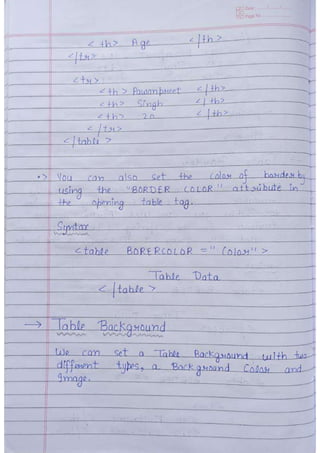 Date
Page No.
< th> Age </th>
</tr>
<tr>
<th> Pawanpreet </th>
<th> Singh </th>
<th> 20 </th>
</tr>
</table >
•> You can also set the color of border by
using the "BORDER COLOR" attribute in
the opening table tag.
Syntax
<table BORERCOLOR = "Color">
Table Data
</table >
→ Table Background
We can set a Table Background with two
different types, a Background Color and
Image.